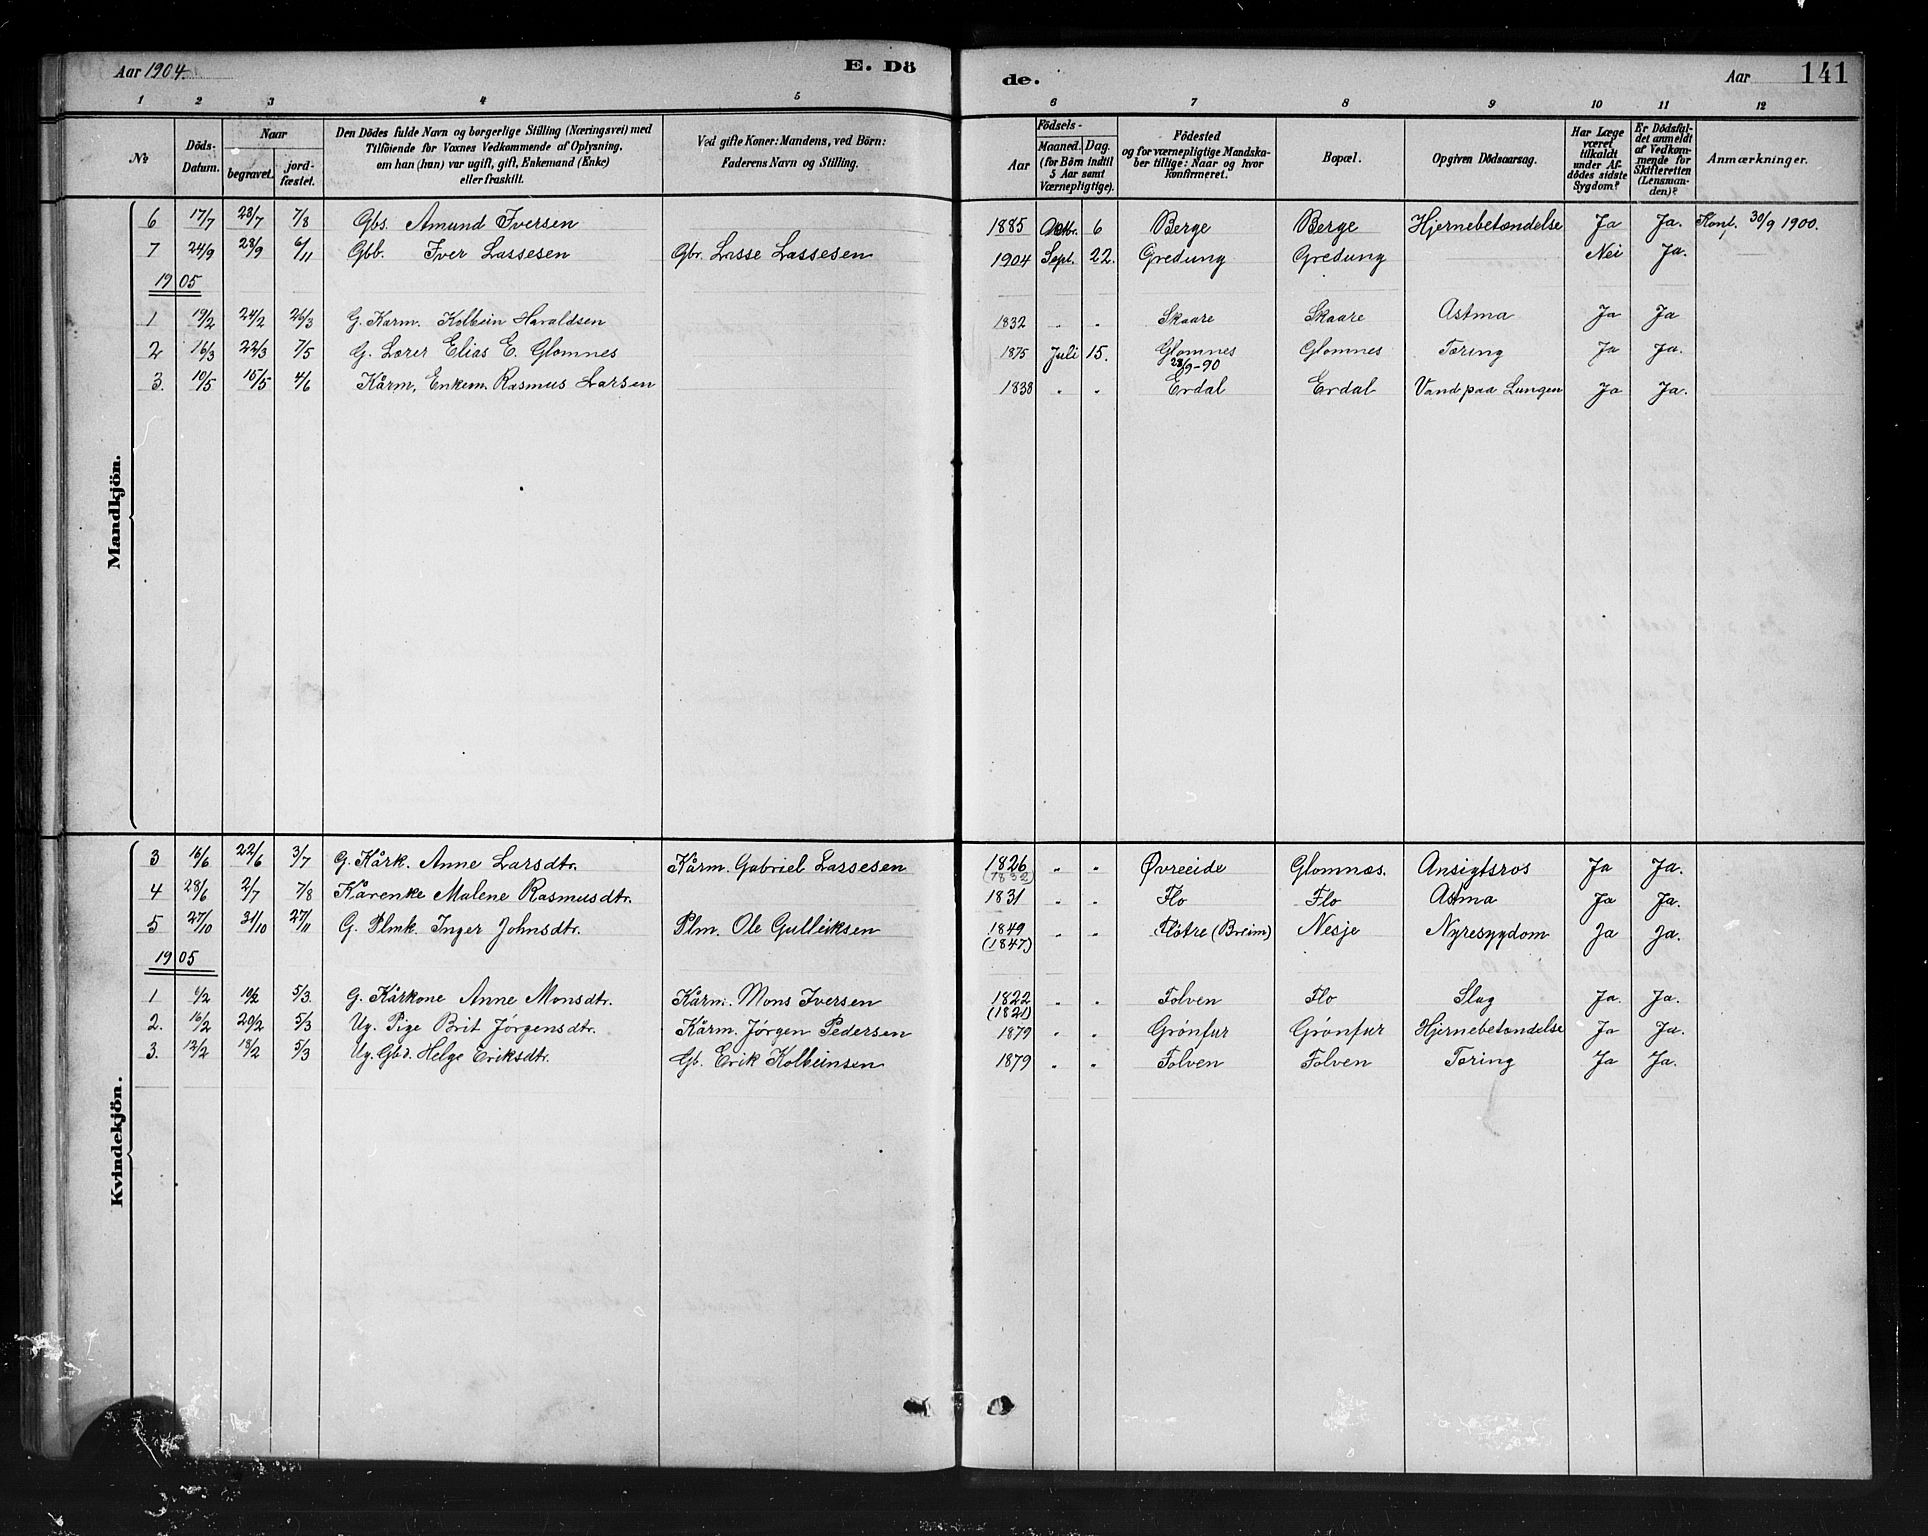 Aar 1904. E. Dö de. Aar 141
1 2 3 4 5 6 7 8 9 10 11 12
No | Döds-Datum. | Naar begravet. | jord-fæstet. | Den Dödes fulde Navn og borgerlige Stilling (Næringsvei) med Tilföiende for Voxnes Vedkommende af Oplysning, om han (hun) var ugift, gift, Enkemand (Enke) eller fraskilt. | Ved gifte Koner: Mandens, ved Börn: Faderens Navn og Stilling. | Födsels- Aar | Maaned. Dag. (for Börn indtil 5 Aar samt Værnepligtige). | Födested og for værnepligtige Mandskaber tillige: Naar og hvor konfirmeret. | Bopæl. | Opgiven Dödsaarsag. | Har Læge været tilkaldt under Afdödes sidste Sygdom? | Er Dödsfaldet anmeldt af Vedkommende for Skifteretten (Lensmanden)? | Anmærkninger.
Mandkjön.
6 17/7 23/7 7/8 Gbs. Amund Iversen 1885 Oktr. 6 Berge Berge Hjernebetændelse Ja Ja. Konf. 30/9 1900.
7 24/9 28/9 6/11 Gbb. Iver Lassesen Gbr. Lasse Lassesen 1904 Sept. 22. Gredung Gredung Nei Ja.
1905
1 19/2 24/2 26/3 G. Karm. Kolbein Haraldsen 1832 " " Skaare Skaare Astma Ja Ja
2 16/3 22/3 7/5 G. Lærer Elias E. Glomnes 1875 Juli 15. Glomnes Glomnes Tæring Ja Ja.
28/9-90
3. 10/5 15/5 4/6 Kårm, Enkem. Rasmus Larsen 1838 " " Erdal Erdal Vand paa Lungen Ja Ja.
Kvindekjön.
3 18/6 22/6 3/7 G. Kårk. Anne Larsdtr. Kårm. Gabriel Lassesen 1826 " " Øvreeide Glomnæs. Ansigtsros Ja Ja.
(1832)
4 28/6 2/7 7/8 Kårenke Malene Rasmusdtr. 1831 " " Flo Flo Astma Ja Ja.
5 27/10 31/10 27/11 G. Plmk. Inger Johnsdtr. Plm. Ole Gulleiksen 1849 " " Fløtre (Breim) Nesje Nyresygdom Ja Ja.
(1847)
1905
1 6/2 10/2 5/3 G. Kårkone Anne Monsdtr. Kårm. Mons Iversen 1822 " " Folven Flo Slag Ja. Ja.
(1821)
2. 16/2 20/2 5/3 Ug. Pige Brit Jørgensdtr. Kårm. Jørgen Pedersen 1879 " " Grønfur Grønfur Hjernebetændelse Ja Ja.
3. 12/2 18/2 5/3 Ug. Gbd. Helge Eriksdtr. Gb. Erik Kolbeinsen 1879 " " Folven Folven Tæring Ja Ja.